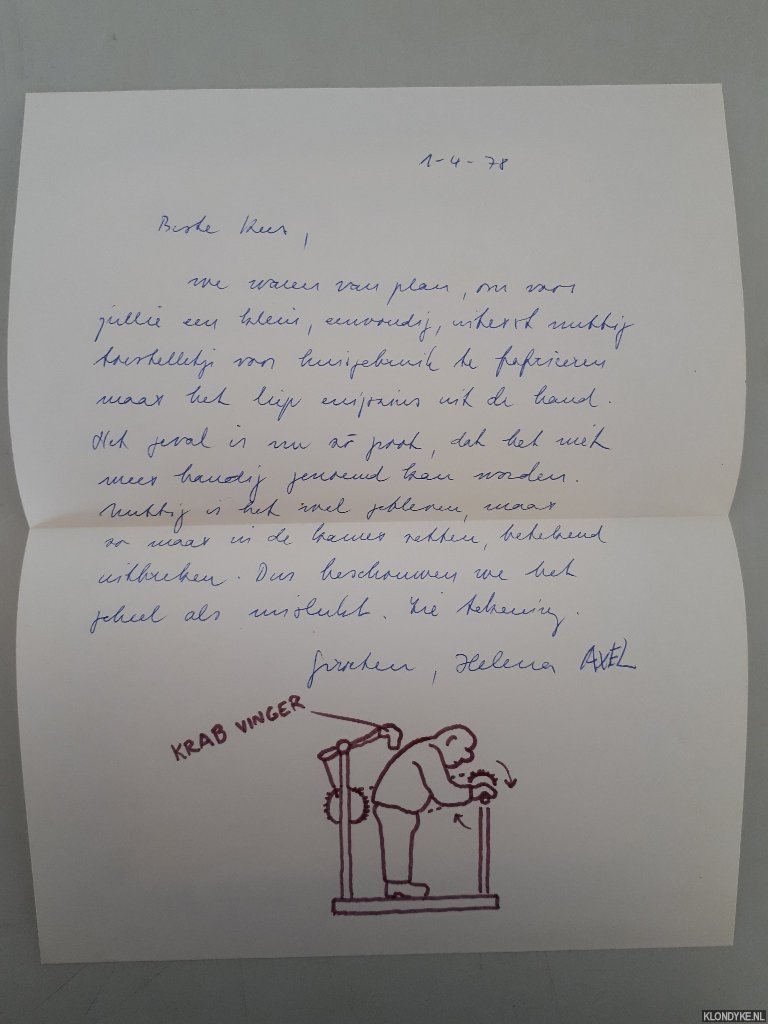 1-4-78
Beste Kees,
we waren van plan, om voor
jullie een klein, eenvoudig, uiterst nuttig
toestelletje voor huisgebruik te fabriceren
maar het liep enigszins uit de hand.
Het geval is nu zó groot, dat het niet
meer handig genoemd kan worden.
Nuttig is het wel gebleven, maar
zo maar in de kamer zetten, betekend
uitbreken. Dus beschouwen we het
geheel als mislukt. Zie tekening.
groeten, Helena AXEL
KRAB VINGER
KLONDYKE.NL